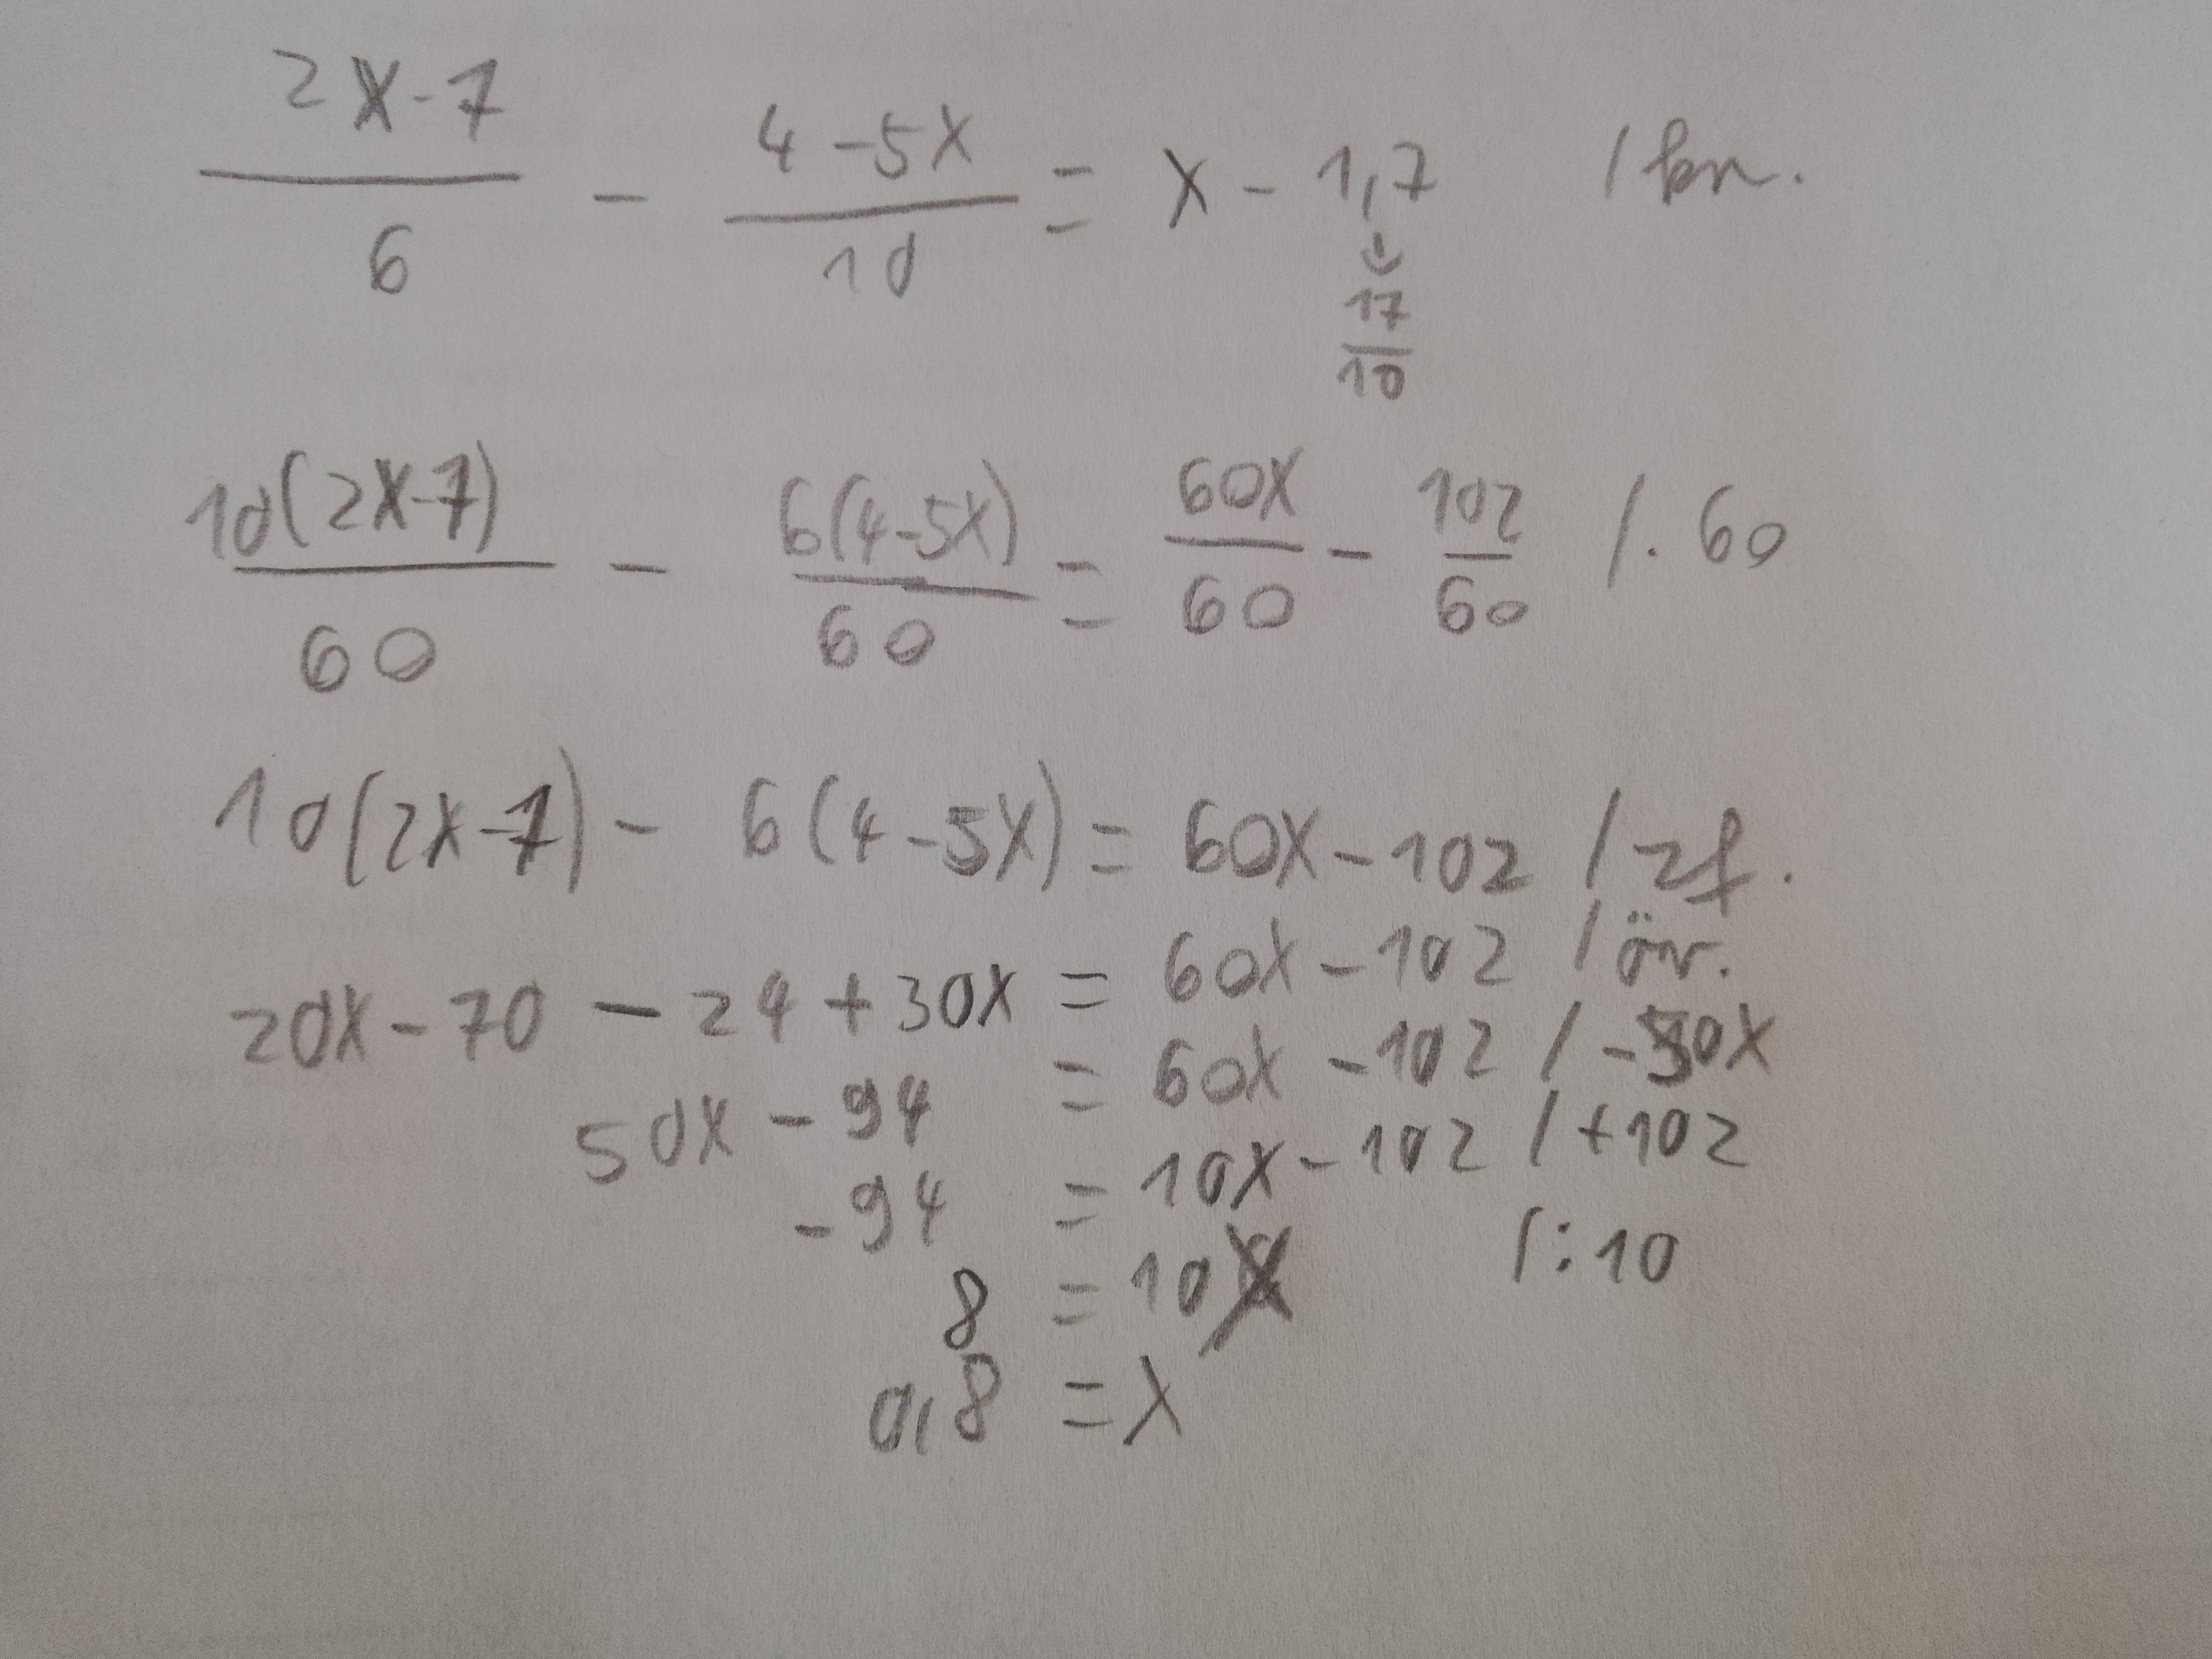 (2x-7)/6 - (4-5x)/10 = x - 1,7 / kn.
↓
17/10
10(2x-7)/60 - 6(4-5x)/60 = 60x/60 - 102/60 / · 60
10(2x-7) - 6(4-5x) = 60x - 102 / zf.
20x - 70 - 24 + 30x = 60x - 102 / öv.
50x - 94 = 60x - 102 / -50x
-94 = 10x - 102 / +102
8 = 10x / :10
0,8 = x